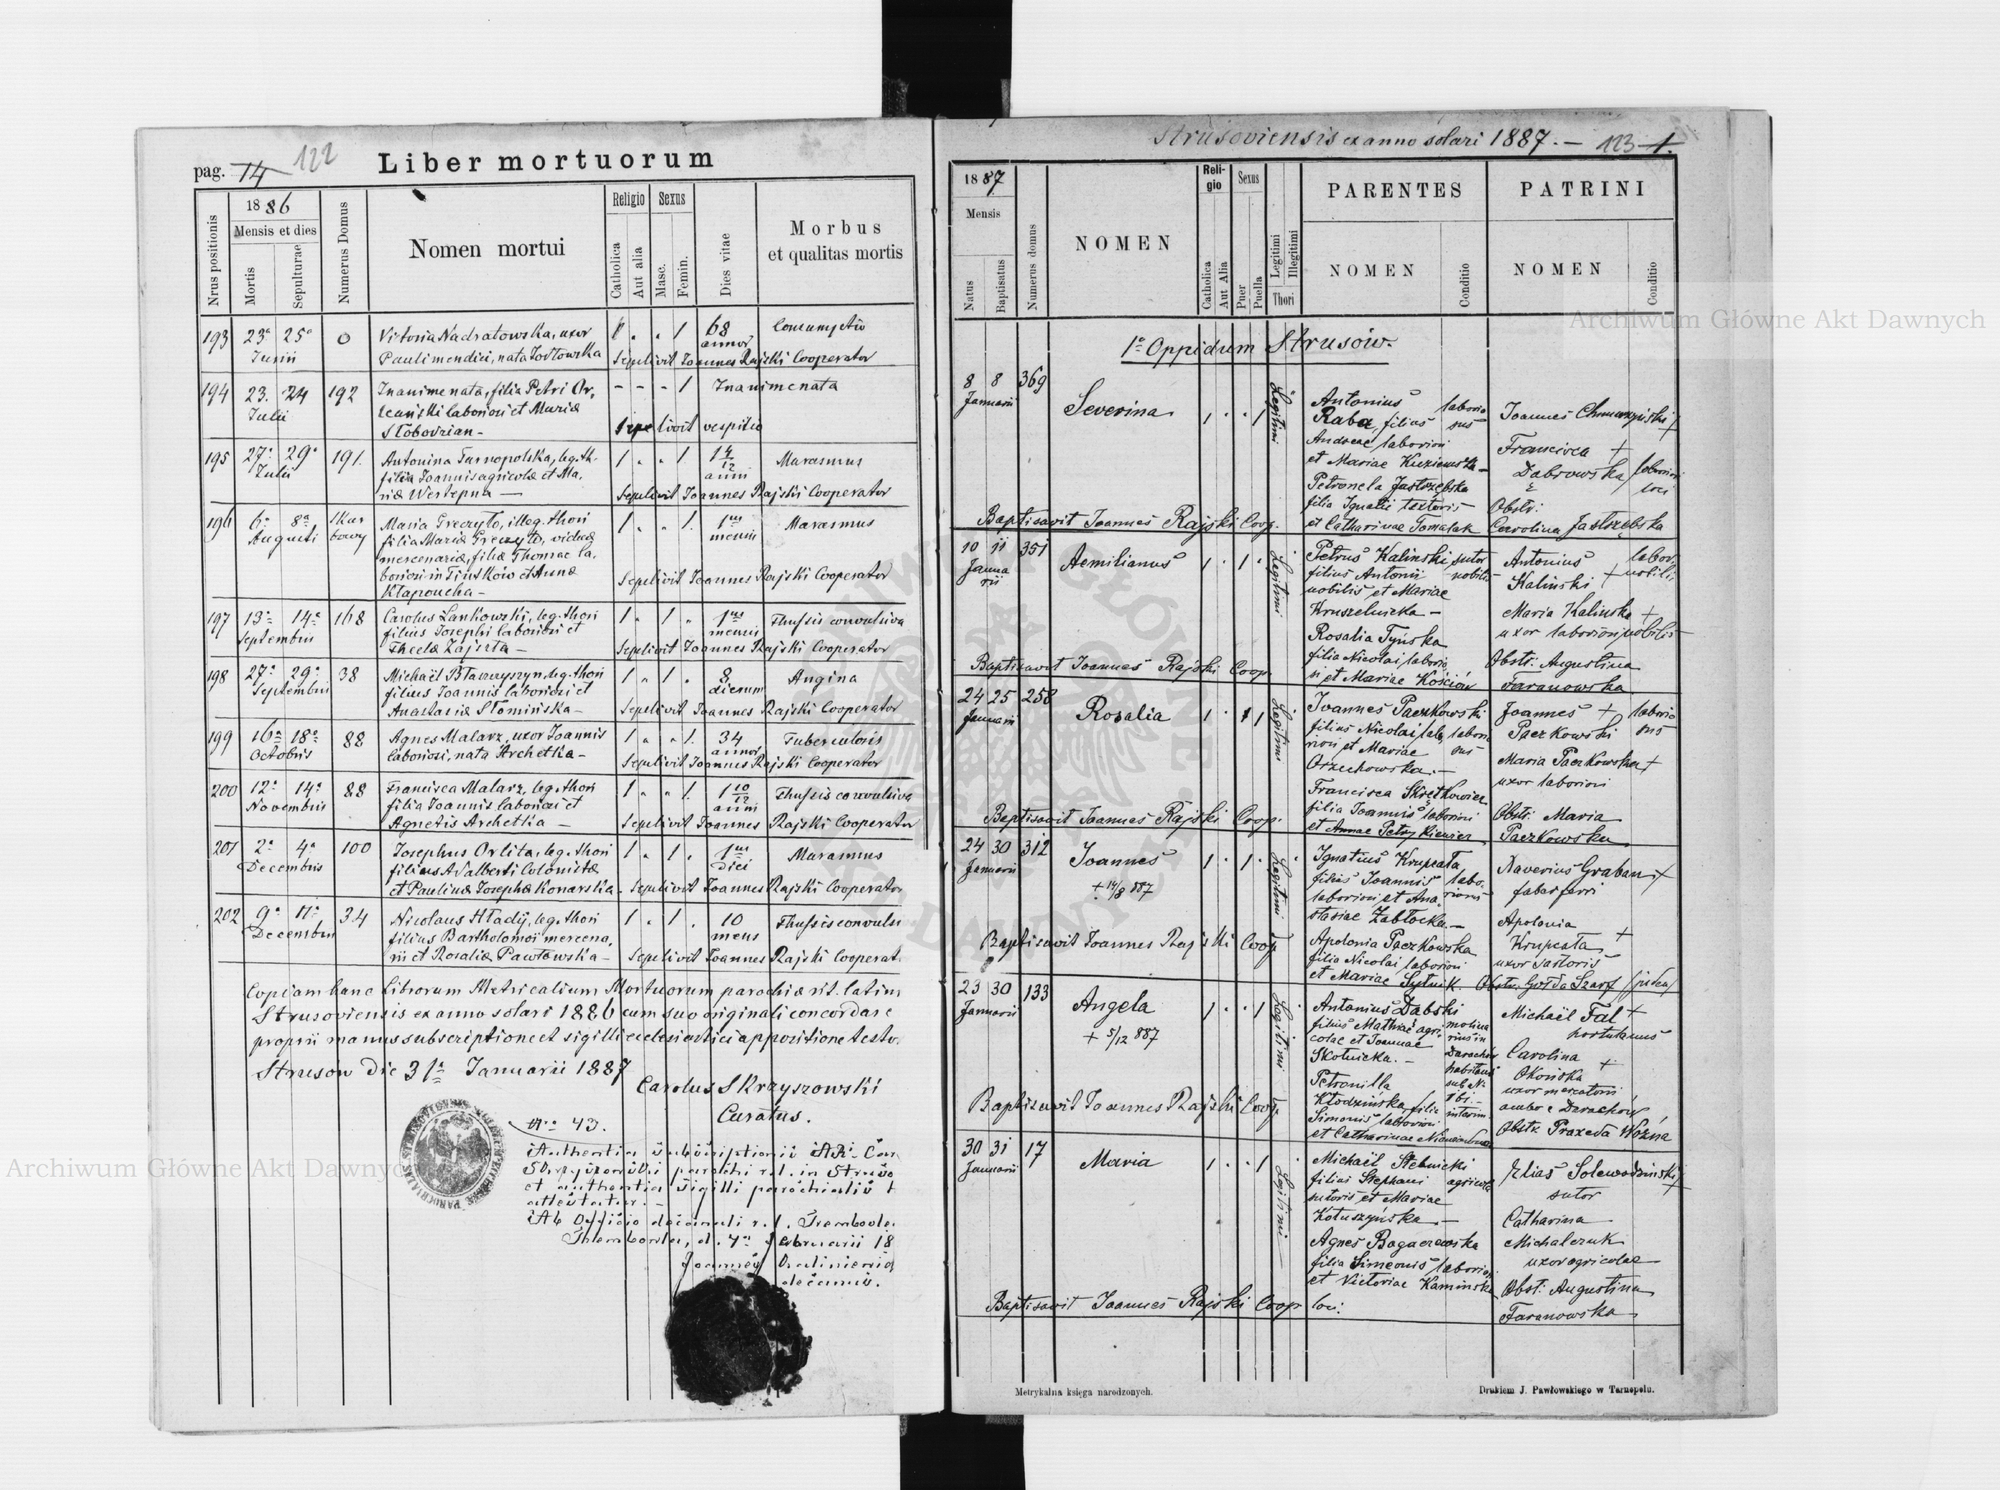 pag. 14 122 Liber mortuorum
Nrus positionis
1886
Mensis et dies
Mortis
Sepulturae
Numerus Domus
Nomen mortui
Religio
Catholica
Aut alia
Sexus
Masc.
Femin.
Dies vitae
Morbus
et qualitas mortis
193 23a 25a 0 Victoria Nadratowska, uxor 1 " " 1 68 Consumptio
Junii Pauli mendici, nata annor
Sepelivit Joannes Rajski Cooperator
194 23. 24 192 Inanime nata, filia Petri Or- - - - 1 Inanime nata
Julii laboriosi et Mariæ
Sepelivit vespilio
195 27a 29a 191. Antonina Tarnopolska, leg. th. 1 " " 1. 1 4/12 Marasmus
Julii filia Joannis agricolæ et Ma- anni
riæ Westepna — Sepelivit Joannes Rajski Cooperator
196 6a 8a Maria Greczyło, illeg. thori 1 " " 1. 1us Marasmus
Augusti filia Mariæ Greczyło, viduæ mensis
mercenariæ, filiæ Thomae la-
boriosi in et Annæ Sepelivit Joannes Rajski Cooperator
Klapoucha -
197 13a 14a 168 Carolus Lankowski, leg. thori 1 " 1 " 1us Thussis convulsiva
Septembris filius Josephi laboriosi et mensis
Theclæ Zajszta - Sepelivit Joannes Rajski Cooperator
198 27a 29a 38 Michaël Błaszczyszyn, leg. thori 1 " 1 " 8 Angina
Septembris filius Joannis laboriosi et dierum
Anastasiæ Słomińska - Sepelivit Joannes Rajski Cooperator
199 16a 18a 88 Agnes Malarz, uxor Joannis 1 " " 1. 34 Tuberculosis
Octobris laboriosi, nata Archetka - annor
Sepelivit Joannes Rajski Cooperator
200 12a 14a 88 Francisca Malarz, leg. thori 1 " " 1. 1 10/12 Thussis convulsiva
Novembris filia Joannis laboriosi et anni
Agnetis Archetka — Sepelivit Joannes Rajski Cooperator
201 2a 4a 100 Josephus Orlita, leg. thori 1 " 1 " 1us Marasmus
Decembris filius Adalberti Colonistæ Diei
et Paulinæ Josephæ Konarska - Sepelivit Joannes Rajski Cooperator
202 9a 11a 34 Nicolaus Hładij, leg. thori 1 " 1 " 10 Thussis convulsi
Decembris filius Bartholomæi mercena- mens
rii et Rosaliæ Pawłowska - Sepelivit Joannes Rajski Cooperat.
Copiam hanc Librorum Metricalium Mortuorum parochiæ rit. latini
Strusoviensis ex anno solari 1886 cum suo originali concordare
proprii manus subscriptione et sigilli ecclesiastici appositione testor
Strusów Die 31a Januarii 1887
Carolus Skrzyszowski
Curatus.
Nro 43.
Authentia subscriptionis
parochi r. l. in
et authentia sigilli parochialis
attestatur. -
Ab Officio decanali r. l.
Trembowla, d. 4a Februarii 18
Joannes
decanus.
Strusoviensis ex anno solari 1887. - 123 1.
1887.
Mensis
Natus
Baptisatus
Numerus domus
NOMEN
Religio
Catholica
Aut Alia
Sexus
Puer
Puella
Legitimi
Illegitimi
Thori
PARENTES
NOMEN
Conditio
PATRINI
NOMEN
Conditio
1o Oppidum Strusów.
8 8 369 Severina 1 . . 1 Legitimi
Januarii
Antonius laborio
Raba, filius sus
Andreae laboriosi
et Mariae Kuziemska -
Petronela Jastrzębska
filia Ignatii textoris
et Catharinae Tomasak
Joannes
Francisca +
Dabrowska
Obstr:
Carolina Jastrzębska
Baptisavit Joannes Rajski Coop.
10 11 351 Aemilianus 1 . 1 . Legitimi
Januarii
Petrus Kalinski, sutor
filius Antonii nobilis
nobilis et Mariae
Kruszelnicka -
Rosalia Tyńska
filia Nicolai laborio
si et Mariae Kościów
Antonius labor.
Kalinski + nobilis
Maria Kalinska +
uxor laboriosi nobilis
Obstr: Augustina
Taranowska
Baptisavit Joannes Rajski Coop.
24 25 258 Rosalia 1 . 1 Legitimi
Januarii
Joannes Paczkowski
filius Nicolai labo laborio
riosi et Mariae sus
Orzechowska. -
Francisca Skrętkowicz
filia Joannis laboriosi
et Annae Petrykiewicz
Joannes + laborio
Paczkowski sus
Maria Paczkowska +
uxor laboriosi
Obstr: Maria
Paczkowska
Baptisavit Joannes Rajski Coop.
24 30 312 Joannes 1 . 1 . Legitimi
Januarii + 14/8 887
Ignatius Krupcała
filius Joannis labo-
laboriosi et Ana- riosus
stasiae Zabłocka. -
Apolonia Paczkowska
filia Nicolai laboriosi
et Mariae Sytnik.
Xaverius Graban +
faber ferri
Apolonia +
Krupcała
uxor sartoris
Obstr. Gołda Szarf
Baptisavit Joannes Rajski Coop.
23 30 133 Angela 1 . . 1 Legitimi
Januarii + 5/12 887
Antonius Dąbski
filius Mathiae agri- molina
colae et Joannae rius in
Skolnicka. - Darachów
Petronilla habitans
Kłodzińska, filia
Simonis laboriosi
et Catharinae
Michaël Fal +
hortulanus
Carolina +
Okońska
uxor mercatoris
ambo e Darachów
Obstr. Praxeda Woźna
Baptisavit Joannes Rajski Coop.
30 31 17 Maria 1 . . 1 Legitimi
Januarii
Michaël Stebnicki
filius Stephani agricola
sutoris et Mariae
Kotuszyńska. -
Agnes Bogaczewska
filia Simeonis laboriosi
et Victoriae Kaminska
Elias
sutor
Catharina
Michalczuk
uxor agricolae
Obst: Augustina
Taranowska
Baptisavit Joannes Rajski Coop. loci:
Metrykalna księga narodzonych.
Drukiem J. Pawłowskiego w Tarnopolu.
Archiwum Główne Akt Dawnych
Archiwum Główne Akt Dawnych